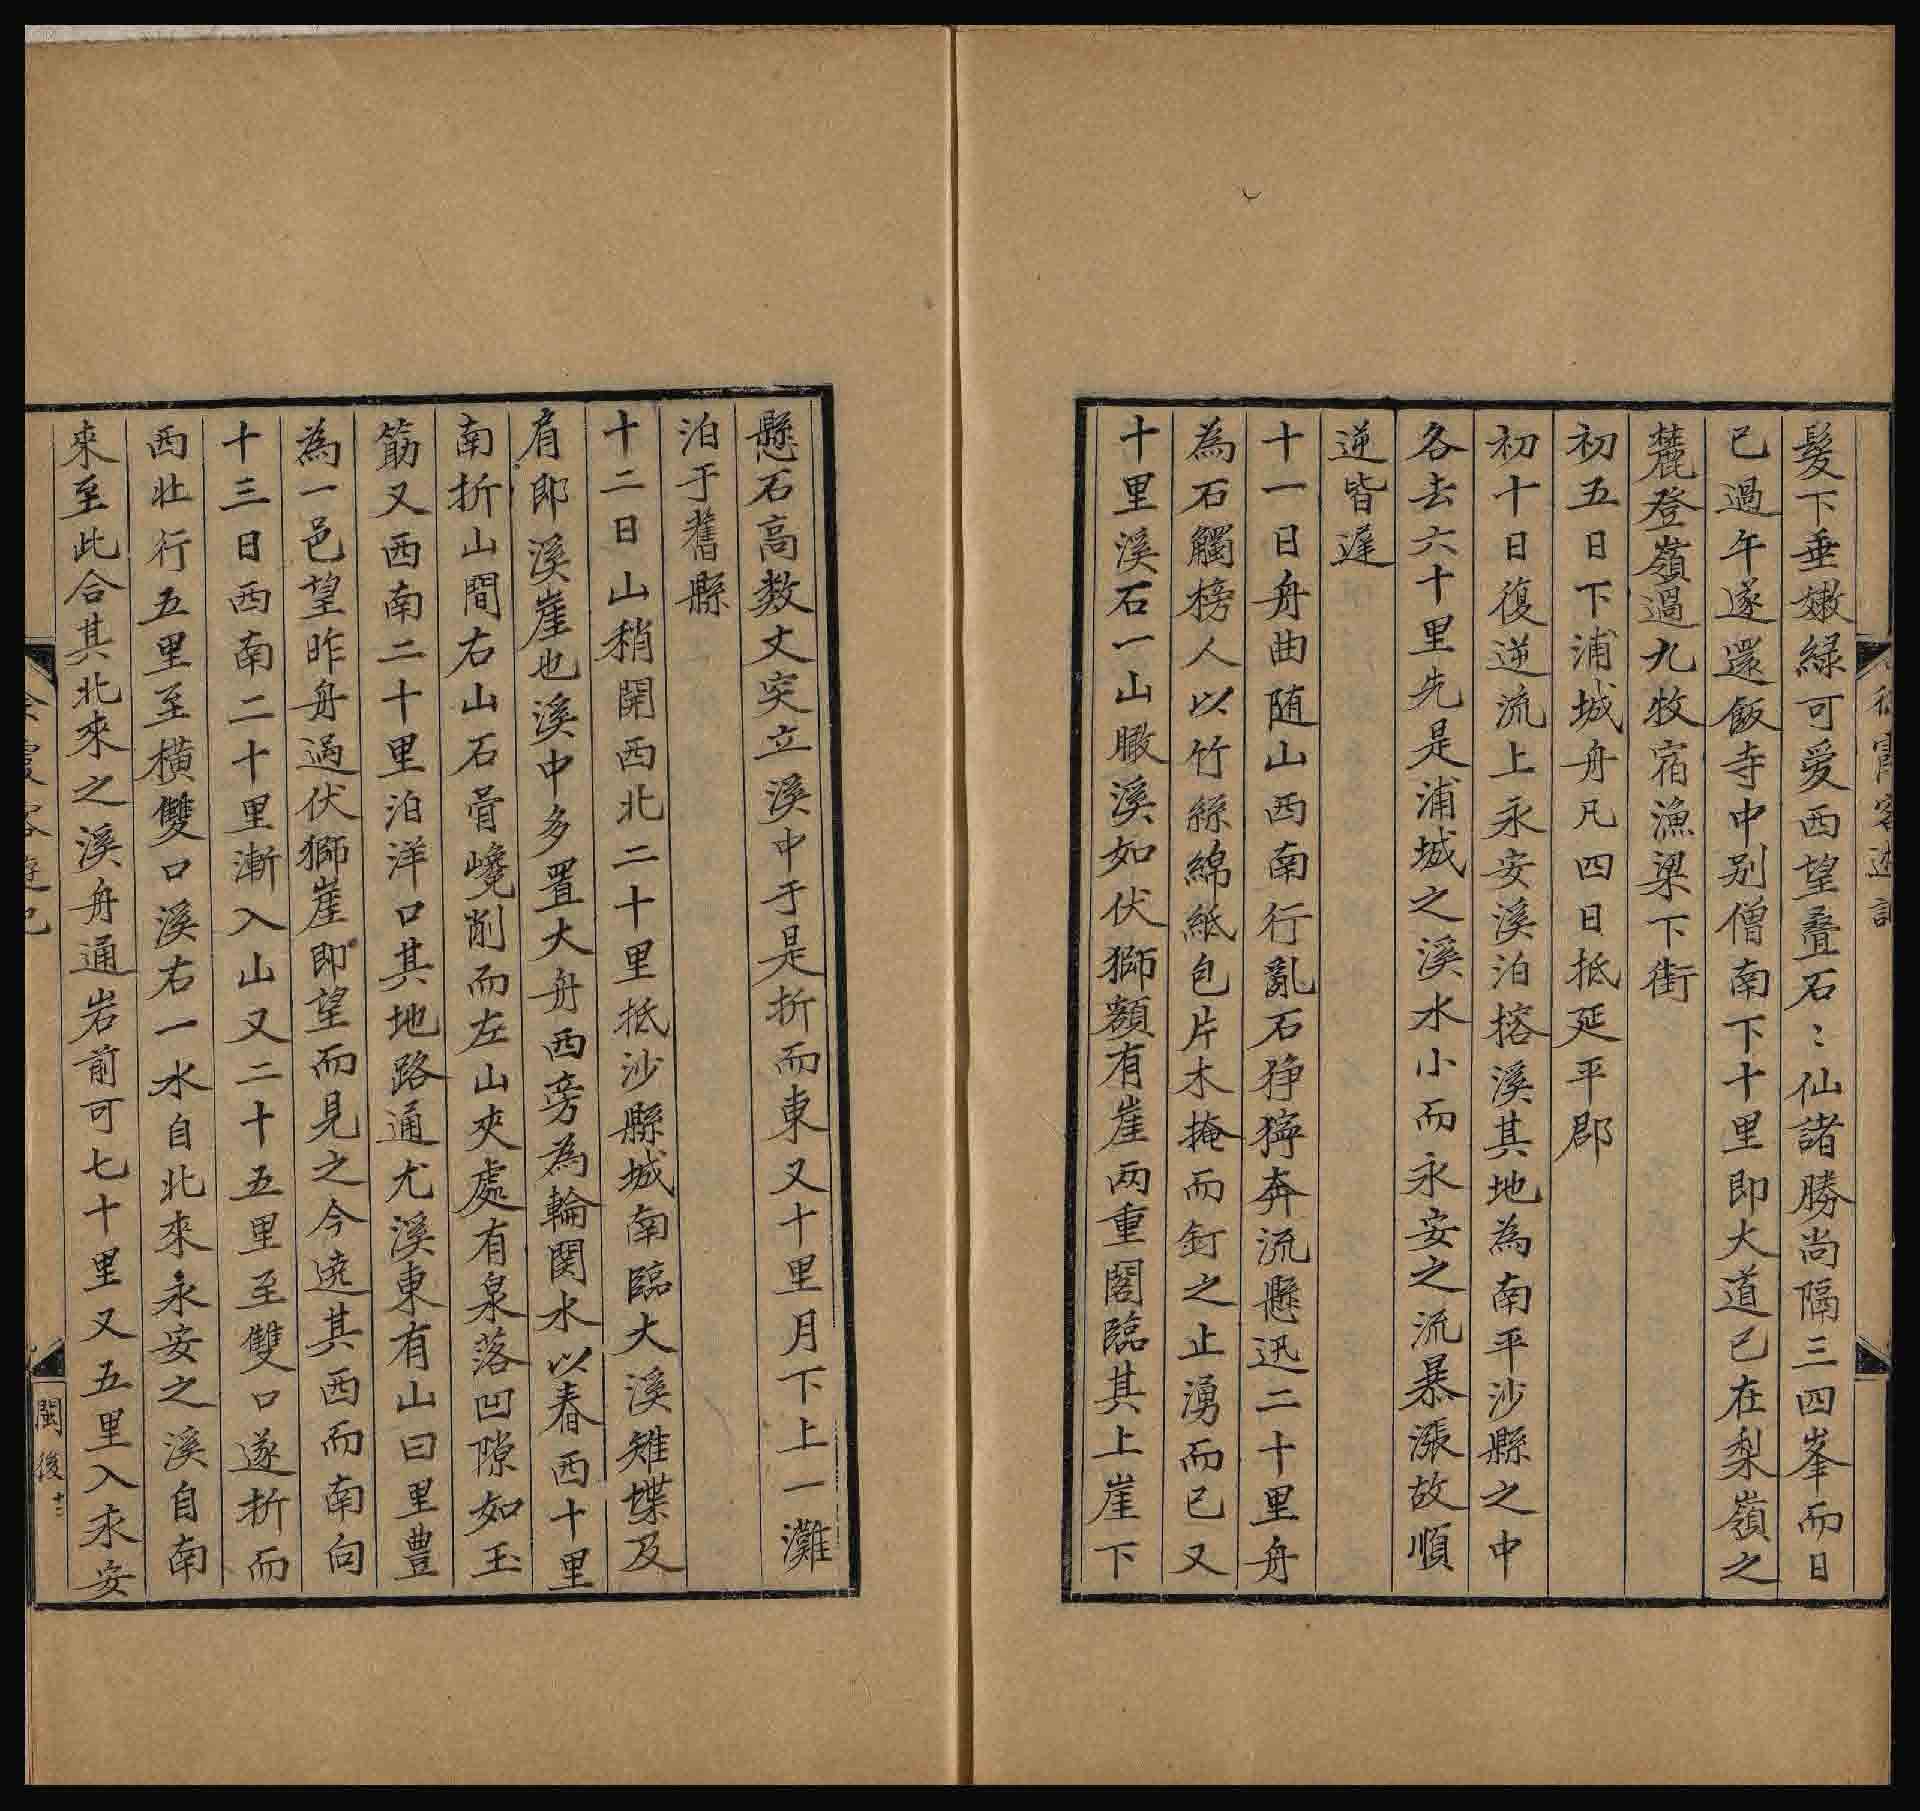 髮下垂嫩綠可愛西望疊石〻仙諸勝尚隔三四峯而日
已過午遂還飯寺中别僧南下十里即大道已在梨嶺之
麓登嶺過九牧宿漁梁下街
初五日下浦城舟凡四日抵延平郡
初十日復逆流上永安溪泊榕溪其地為南平沙縣之中
各去六十里先是浦城之溪水小而永安之流暴漲故順
逆皆遲
十一日舟曲随山西南行亂石猙獰奔流懸迅二十里舟
為石觸榜人以竹絲綿紙包片木掩而釘之止湧而已又
十里溪石一山瞰溪如伏獅額有崖两重閣臨其上崖下
懸石高数丈突立溪中于是折而東又十里月下上一灘
泊于舊縣
十二日山稍開西北二十里抵沙縣城南臨大溪雉堞及
肩即溪崖也溪中多置大舟西旁為輪関水以舂西十里
南折山間右山石骨巉削而左山夾處有泉落凹隙如玉
筯又西南二十里泊洋口其地路通尤溪東有山曰里豊
為一邑望昨舟過伏獅崖即望而見之今遶其西而南向
十三日西南二十里漸入山又二十五里至雙口遂折而
西北行五里至横雙口溪右一水自北來永安之溪自南
來至此合其北來之溪舟通岩前可七十里又五里入永安
閩後十二